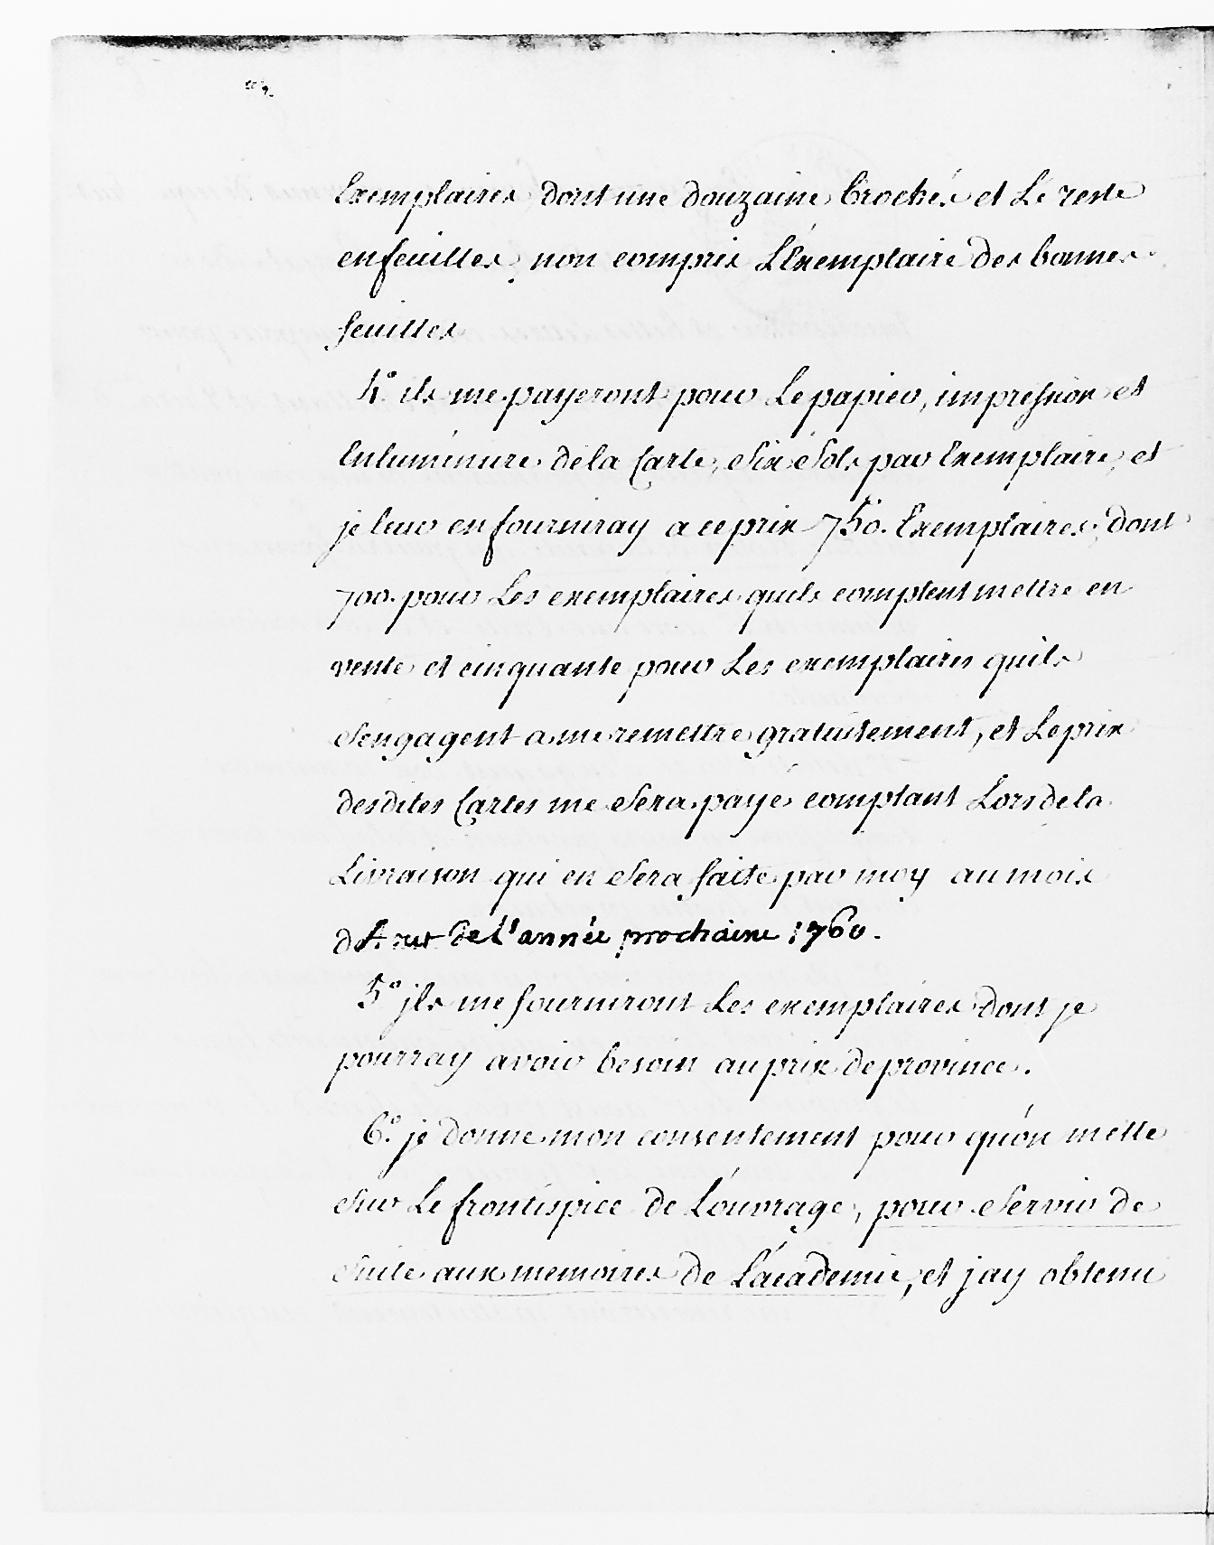 Exemplaires dont une douzaine brochés et Le reste
en feuilles, non compris L'Exemplaire des bonnes
feuilles
4.° ils me payeront pour Le papier, impression et
Enluminure de la Carte, Six Sols par Exemplaire, et
je leur en fourniray a ce prix 750. Exemplaires, dont
700. pour Les exemplaires quils comptent mettre en
vente et cinquante pour Les exemplaires quils
S'engagent a me remettre gratuitement, et Le prix
desdites Cartes me Sera payé comptant Lors de la
Livraison qui en Sera faite par moy au mois
de l'année prochaine 1760.
5.° jls me fourniront Les exemplaires dont je
pourray avoir besoin au prix de province.
6.° je donne mon consentement pour qu'on mette
Sur Le frontispice de L'ouvrage, pour Servir de
Suite aux memoires de L'academie, et jay obtenu